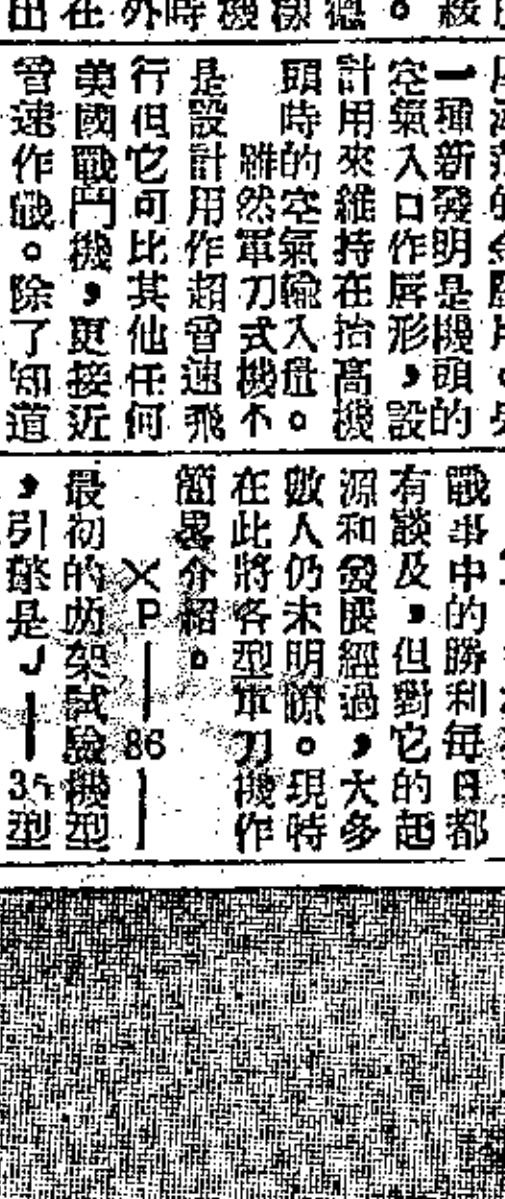 一種新發明是機頭的
空氣入口作唇形，設
計用來維持在抬高機
頭時的空氣輸入量。
雖然軍刀式機不
是設計用作超音速飛
行但它可比其他任何
美國戰鬥機，更接近
音速作戰。除了知道
戰事中的勝利每日都
有談及，但對它的起
源和發展經過，大多
數人仍未明瞭。現時
在此將各型軍刀機作
簡畧介紹。
ＸＰ—86—
最初的兩架試驗機型
，引擎是Ｊ—35型